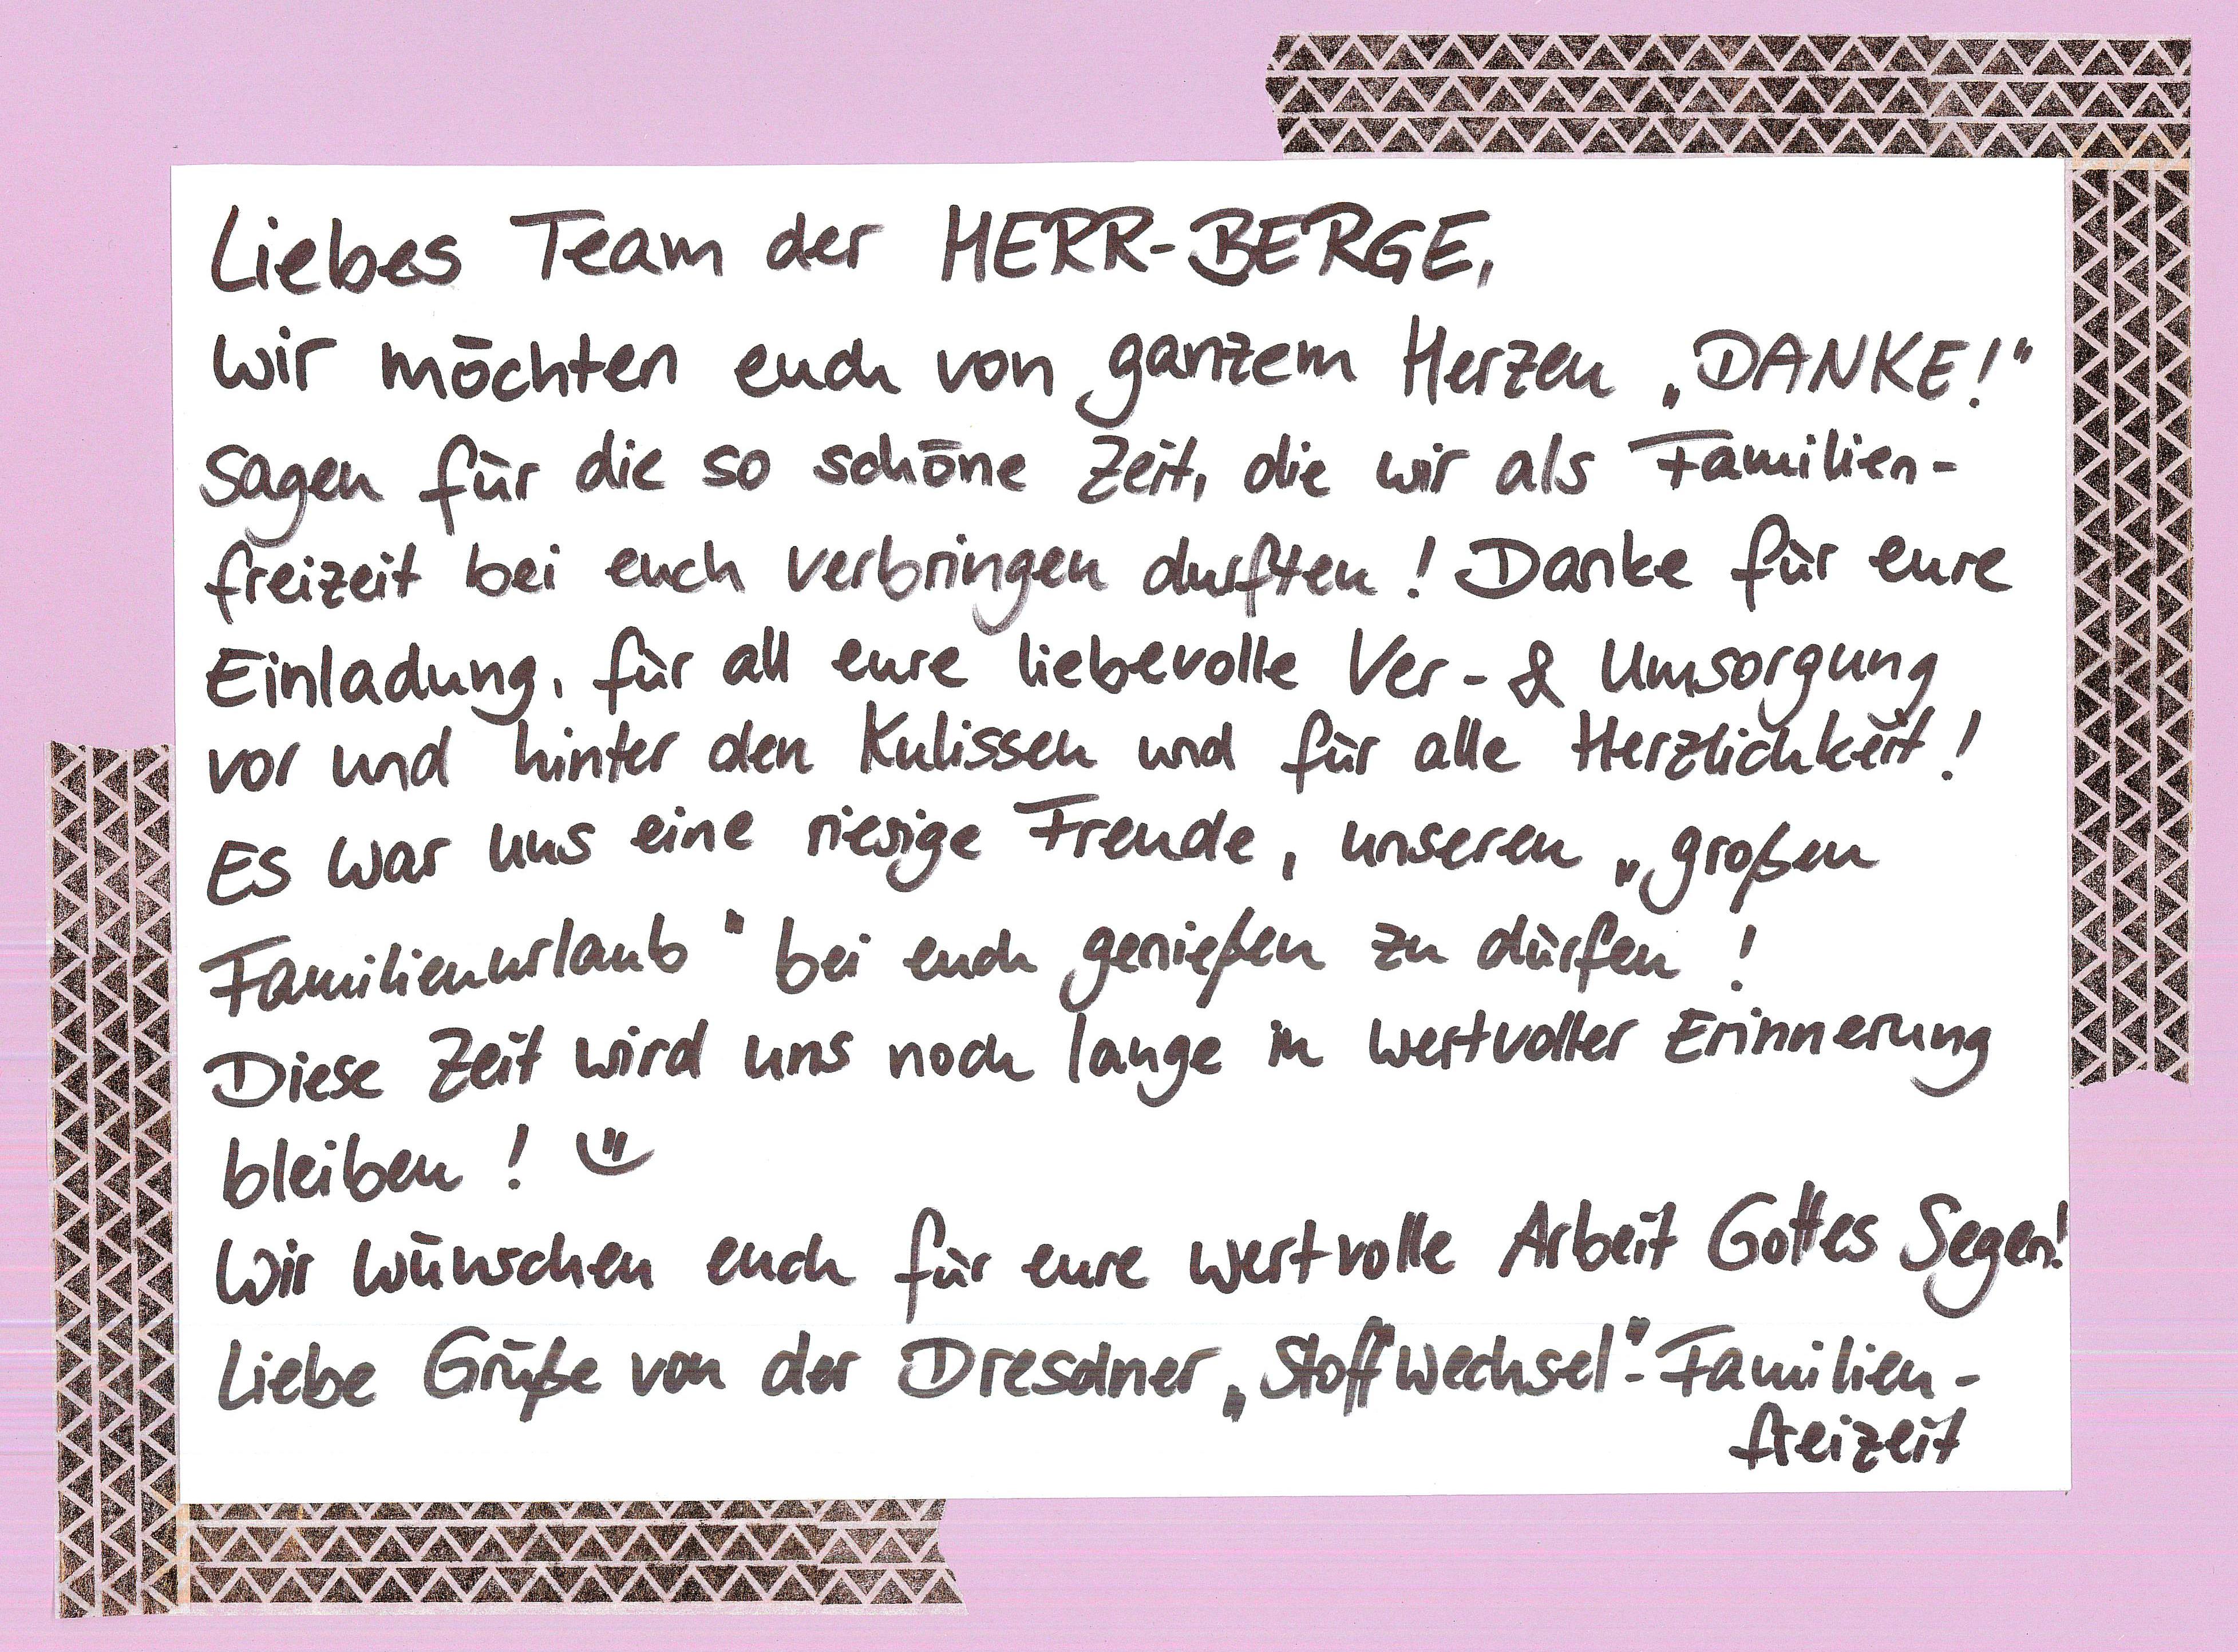 Liebes Team der HERR-BERGE,
wir möchten euch von ganzem Herzen „DANKE!"
sagen für die so schöne Zeit, die wir als Familien-
freizeit bei euch verbringen durften! Danke für eure
Einladung, für all eure liebevolle Ver- & Umsorgung
vor und hinter den Kulissen und für alle Herzlichkeit!
Es war uns eine riesige Freude, unseren „großen
Familienurlaub" bei euch genießen zu dürfen!
Diese Zeit wird uns noch lange in wertvoller Erinnerung
bleiben! 
Wir wünschen euch für eure wertvolle Arbeit Gottes Segen!
Liebe Grüße von der Dresdner „Stoffwechsel"-Familien-
freizeit